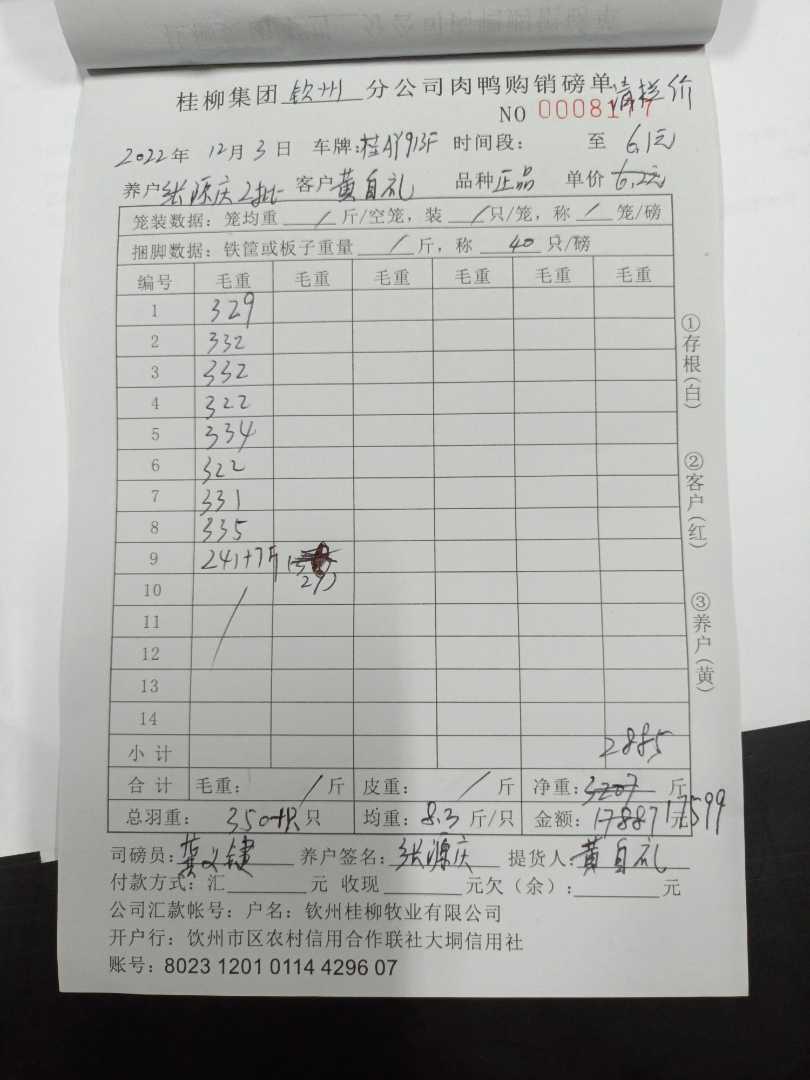 桂柳集团 钦州 分公司肉鸭购销磅单 清栏价
NO 0008177
2022年 12月 3日 车牌:桂AY913F 时间段: 至 6.1元
养户 张源庆2批 客户 黄自礼 品种 正品 单价 6.2元
笼装数据: 笼均重 / 斤/空笼, 装 / 只/笼, 称 / 笼/磅
捆脚数据: 铁筐或板子重量 / 斤, 称 40 只/磅
编号 毛重 毛重 毛重 毛重 毛重 毛重
1 329
2 332
3 332
4 322
5 334
6 322
7 331
8 335
9 241+7斤
10
11
12
13
14
小计 2885
合计 毛重: / 斤 皮重: / 斤 净重: 3207 斤
总羽重: 350+1只 只 均重: 8.3 斤/只 金额: 17887 元 17599
司磅员: 龚义键 养户签名: 张源庆 提货人: 黄自礼
付款方式: 汇 元 收现 元欠(余): 元
公司汇款帐号: 户名: 钦州桂柳牧业有限公司
开户行: 饮州市区农村信用合作联社大垌信用社
账号: 8023 1201 0114 4296 07
①存根(白)
②客户(红)
③养户(黄)